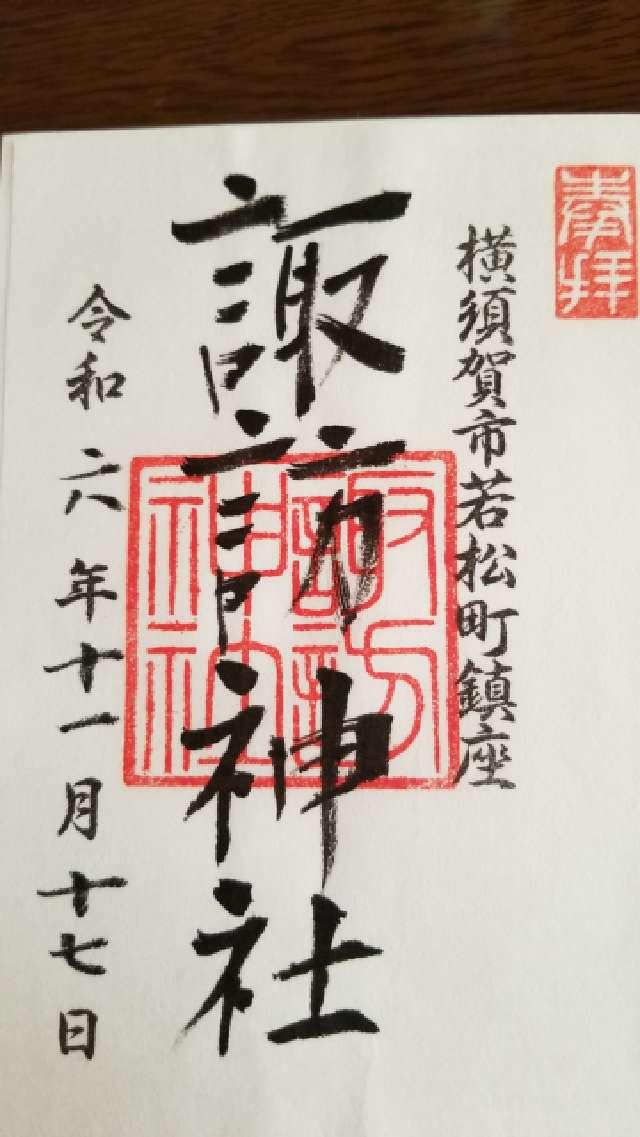 奉拝
横須賀市若松町鎮座
諏訪神社
諏訪神社
令和六年十一月十七日